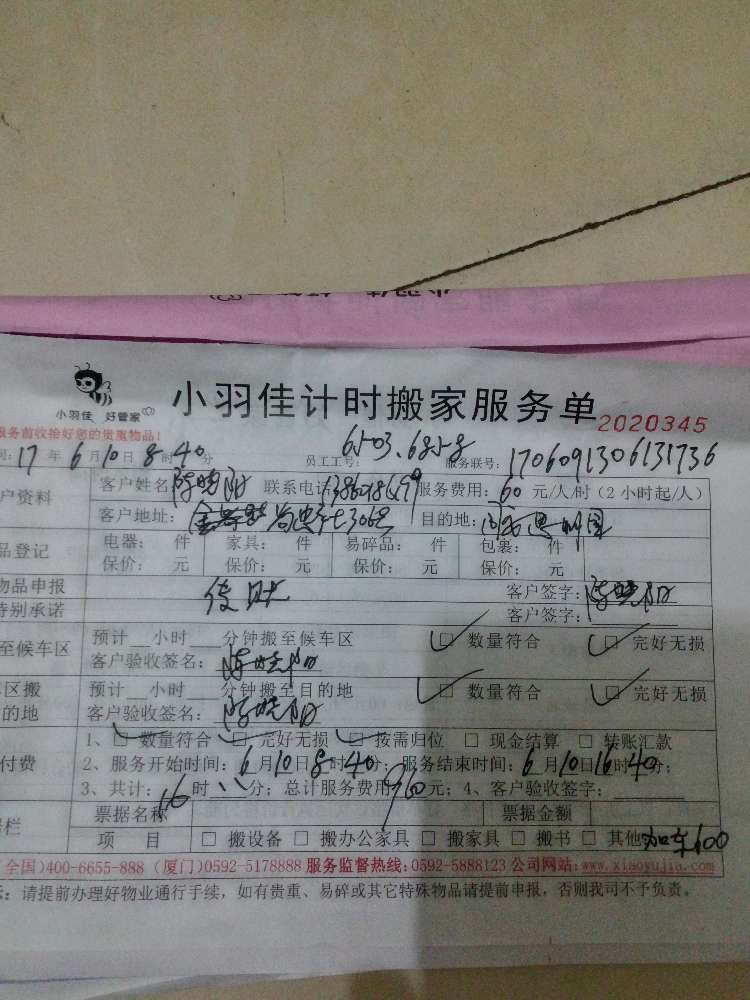 小羽佳 好管家
小羽佳计时搬家服务单 2020345
服务前收拾好您的贵重物品!
间: 17 年 6 月 10 日 8 时 40 分 员工工号: 6503.6858 服务联号: 1706091306131736
户资料 客户姓名: 陈晓阳 联系电话: 服务费用: 60 元/人/时 (2 小时起/人)
客户地址: 目的地:
品登记 电器: 件 家具: 件 易碎品: 件 包裹: 件
保价: 元 保价: 元 保价: 元 保价: 元
物品申报 客户签字: 陈晓阳
特别承诺 客户签字:
至候车区 预计__小时___分钟搬至候车区 ☑ 数量符合 ☑ 完好无损
客户验收签名: 陈晓阳
区搬 预计__小时___分钟搬至目的地 ☑ 数量符合 ☑ 完好无损
的地 客户验收签名: 陈晓阳
付费 1、☑ 数量符合 ☑ 完好无损 ☑ 按需归位 □ 现金结算 □ 转账汇款
2、服务开始时间: 6 月 10 日 8 时 40 分; 服务结束时间: 6 月 10 日 16 时 40 分;
3、共计: 16 时 分; 总计服务费用 960 元; 4、客户验收签字:
栏 票据名称 票据金额
项 目 □ 搬设备 □ 搬办公家具 □ 搬家具 □ 搬书 □ 其他 加车600
(全国)400-6655-888 (厦门)0592-5178888 服务监督热线:0592-5888123 公司网站:www.xiaoyujia.com
示: 请提前办理好物业通行手续, 如有贵重、易碎或其它特殊物品请提前申报, 否则我司不予负责。